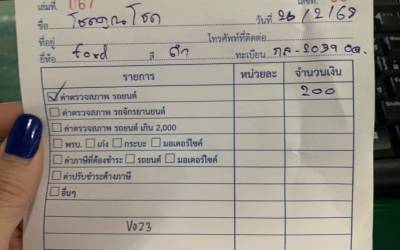 เล่มที่. 067 เลขที่.
ชื่อ โชคคูณโชค วันที่ 26/2/68
ที่อยู่ โทรศัพท์ที่ติดต่อ
ยี่ห้อ ford สี ดำ ทะเบียน กล-2039
รายการ หน่วยละ จำนวนเงิน
ค่าตรวจสภาพ รถยนต์ 200
ค่าตรวจสภาพ รถจักรยานยนต์
ค่าตรวจสภาพ รถยนต์ เกิน 2,000
พรบ. เก๋ง กระบะ มอเตอร์ไซค์
ค่าภาษีที่ต้องชำระ รถยนต์ มอเตอร์ไซค์
ค่าปรับชำระค้างภาษี
อื่นๆ
V023